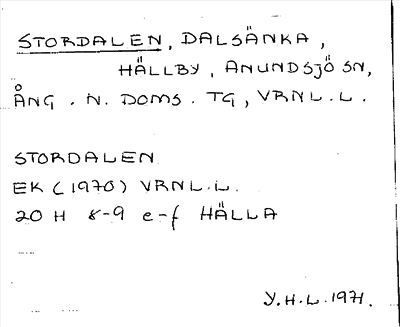 STORDALEN, DALSÄNKA,
HÄLLBY, ANUNDSJÖ SN,
ÅNG. N. DOMS. TG, VRNL.L.
STORDALEN
EK (1970) VRNL.L.
20 H 8-9 e-f HÄLLA
Y.H.L. 1971.